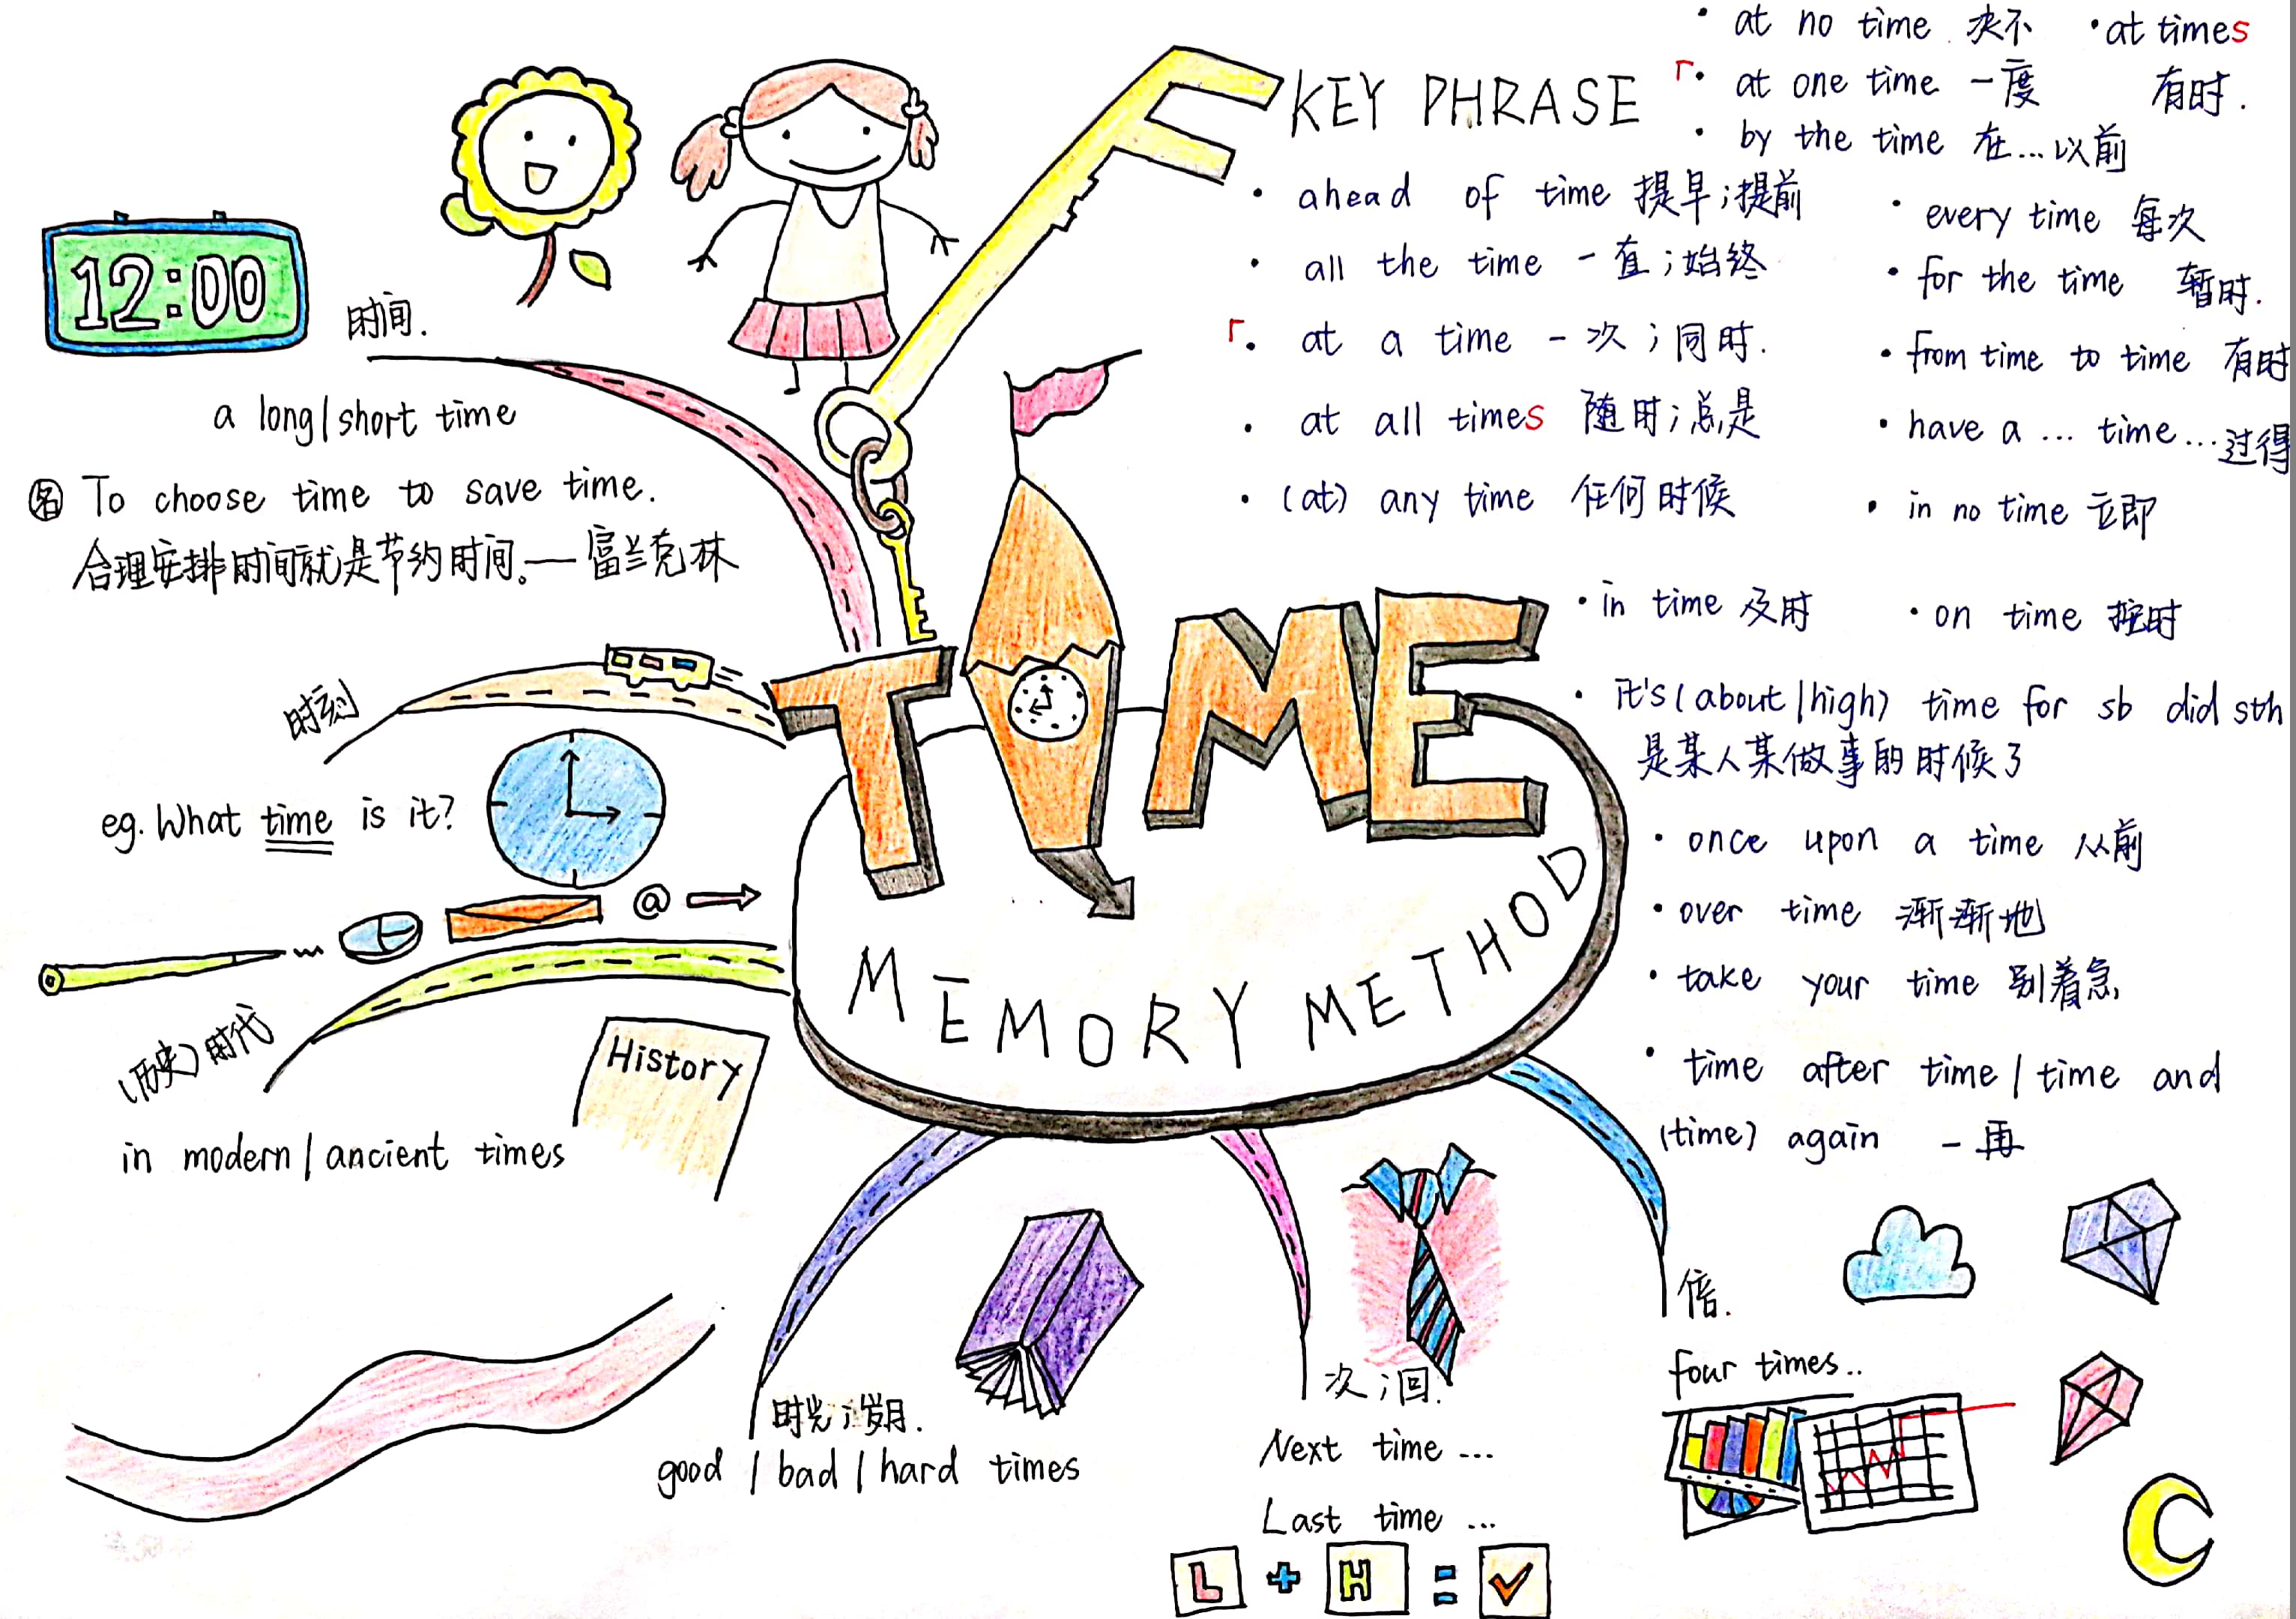 12:00
时间.
a long/short time
名 To choose time to save time.
合理安排时间就是节约时间。——富兰克林
时刻
eg. What time is it?
@
(历史)时代
History
in modern/ancient times
TIME
MEMORY METHOD
时光;岁月.
good / bad / hard times
次;回.
Next time ...
Last time ...
L + H = ✓
倍.
four times..
KEY PHRASE
• at no time 决不
• at times
有时.
r• at one time 一度
• by the time 在...以前
• ahead of time 提早;提前
• all the time 一直;始终
r• at a time 一次;同时.
• at all times 随时;总是
• (at) any time 任何时候
• every time 每次
• for the time 暂时.
• from time to time 有时
• have a ... time ...过得
• in no time 立即
• in time 及时
• on time 按时
• it's (about/high) time for sb did sth
是某人某做事的时候了
• once upon a time 从前
• over time 渐渐地
• take your time 别着急
• time after time / time and
(time) again 一再